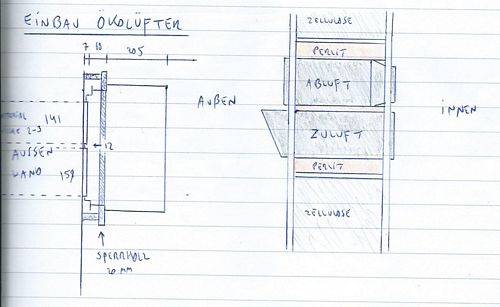 EINBAU ÖKOLÜFTER
7 18 205
141
2-3
AUSSEN
WAND 159
12
SPERRHOLZ
20 MM
AUßEN
ZELLULOSE
PERLIT
ABLUFT
ZULUFT
PERLIT
ZELLULOSE
INNEN